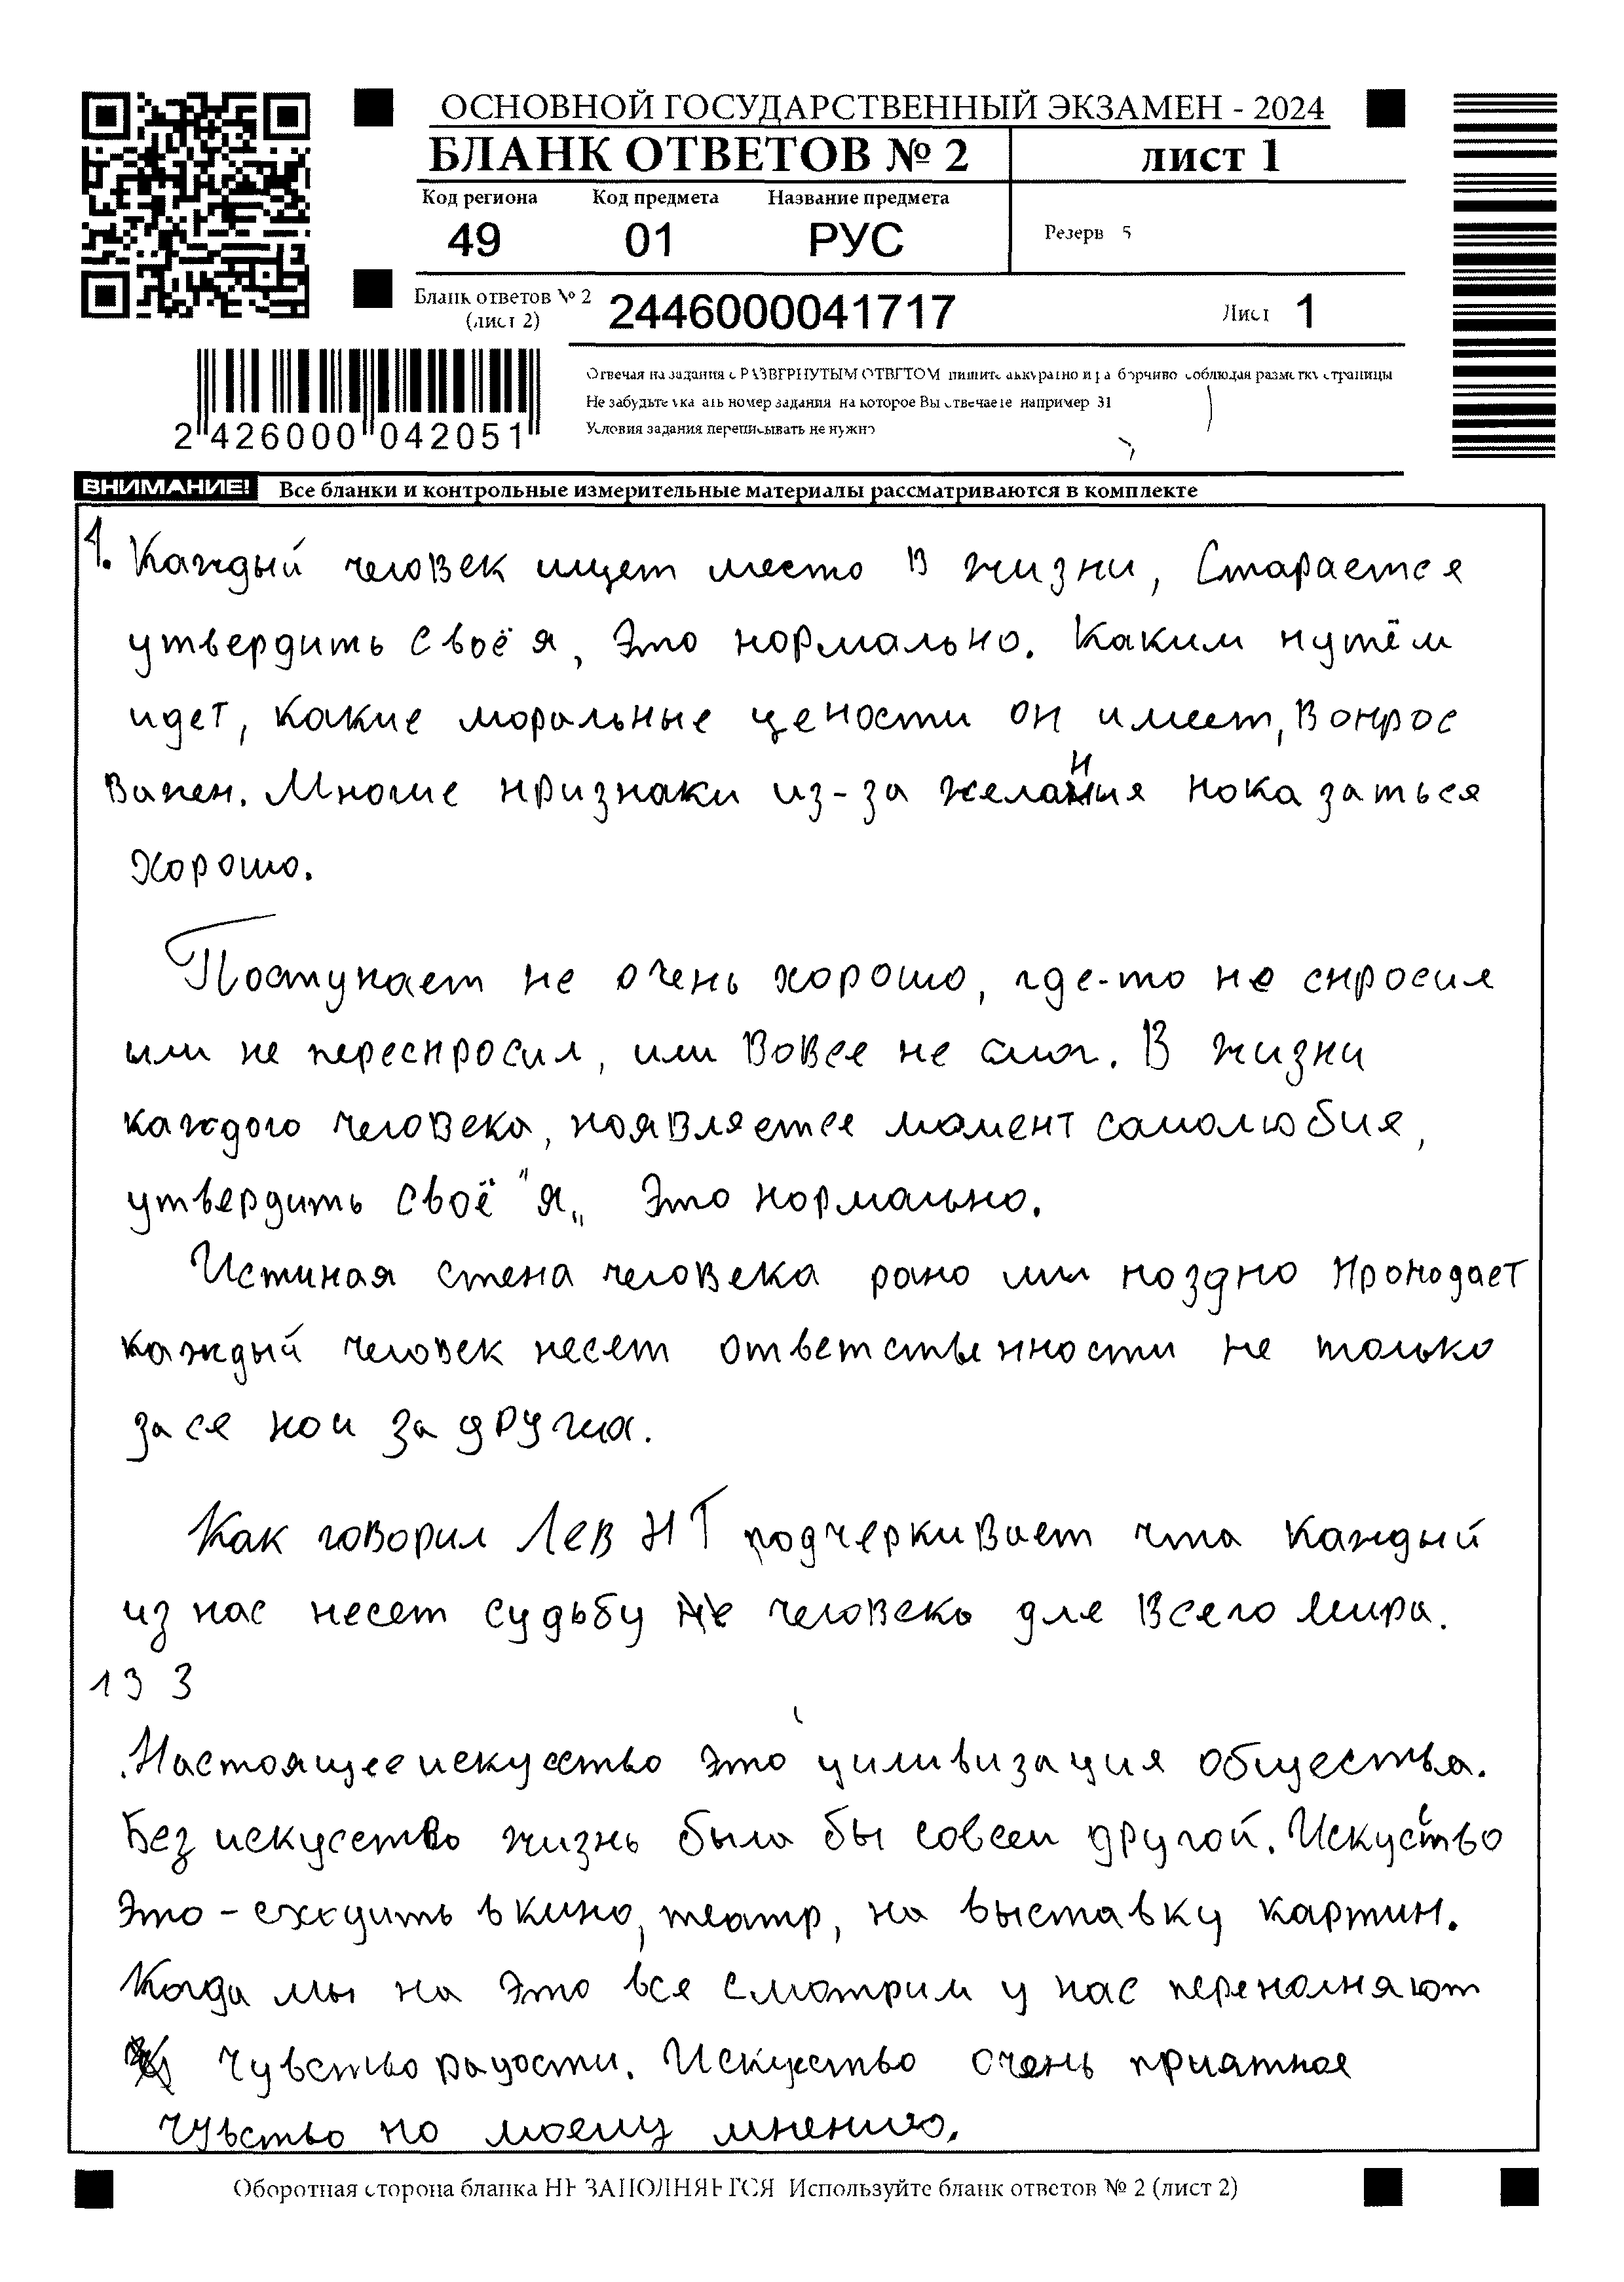 ОСНОВНОЙ ГОСУДАРСТВЕННЫЙ ЭКЗАМЕН - 2024
БЛАНК ОТВЕТОВ № 2
лист 1
Код региона Код предмета Название предмета
49 01 РУС
Резерв 5
Бланк ответов № 2
(лист 2)
2446000041717
Лист 1
2 426000 042051
Отвечая на задания с РАЗВЕРНУТЫМ ОТВЕТОМ пишите аккуратно и разборчиво соблюдая разметку страницы
Не забудьте указать номер задания на которое Вы отвечаете например 31
Условия задания переписывать не нужно
ВНИМАНИЕ! Все бланки и контрольные измерительные материалы рассматриваются в комплекте
1. Каждый человек ищет место в жизни, Старается
утвердить своё я, Это нормально. Каким путём
идет, какие моральные цености он имеет, Вопрос
Важен. Многие признаки из-за желания показаться
Хорошо.
Поступает не очень хорошо, где-то не спросил
или не переспросил, или Вовсе не смог. В жизни
каждого человека, появляется момент самолюбия,
утвердить своё "я„ Это нормально.
Истиная стена человека рано или поздно
каждый человек несет ответственности не только
за се но и за других.
Как говорил Лев НТ подчеркивает что каждый
из нас несет судьбу человека для Всего мира.
13 3
Настоящее искусство это циливизация общества.
Без искусство жизнь была бы совсем другой. Искусство
Это - сходить в кино, театр, на выставку картин.
Когда мы на это все смотрим у нас переполняют
чувство радости. Искусство очень приятное
чувство по моему мнению.
Оборотная сторона бланка НЕ ЗАПОЛНЯЕТСЯ Используйте бланк ответов № 2 (лист 2)